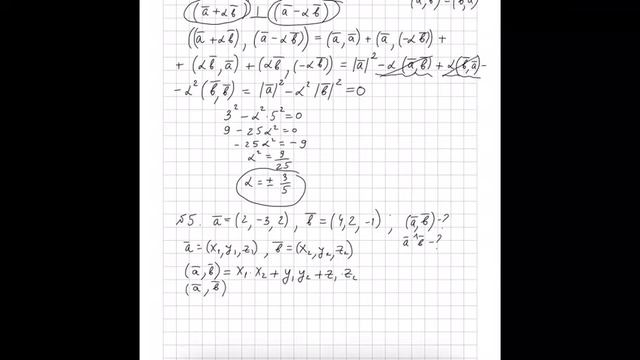 (a̅ + αb̅) ⊥ (a̅ - αb̅)
((a̅ + αb̅), (a̅ - αb̅)) = (a̅, a̅) + (a̅, (-αb̅)) +
+ (αb̅, a̅) + (αb̅, (-αb̅)) = |a̅|² - α(a̅, b̅) + α(b̅, a̅) -
- α²(b̅, b̅) = |a̅|² - α²|b̅|² = 0
3² - α²·5² = 0
9 - 25α² = 0
- 25α² = -9
α² = 9/25
α = ± 3/5
№5. a̅ = (2, -3, 2), b̅ = (4, 2, -1) ; (a̅, b̅) - ?
a̅^b̅ - ?
a̅ = (x₁, y₁, z₁), b̅ = (x₂, y₂, z₂)
(a̅, b̅) = x₁·x₂ + y₁y₂ + z₁·z₂
(a̅, b̅)